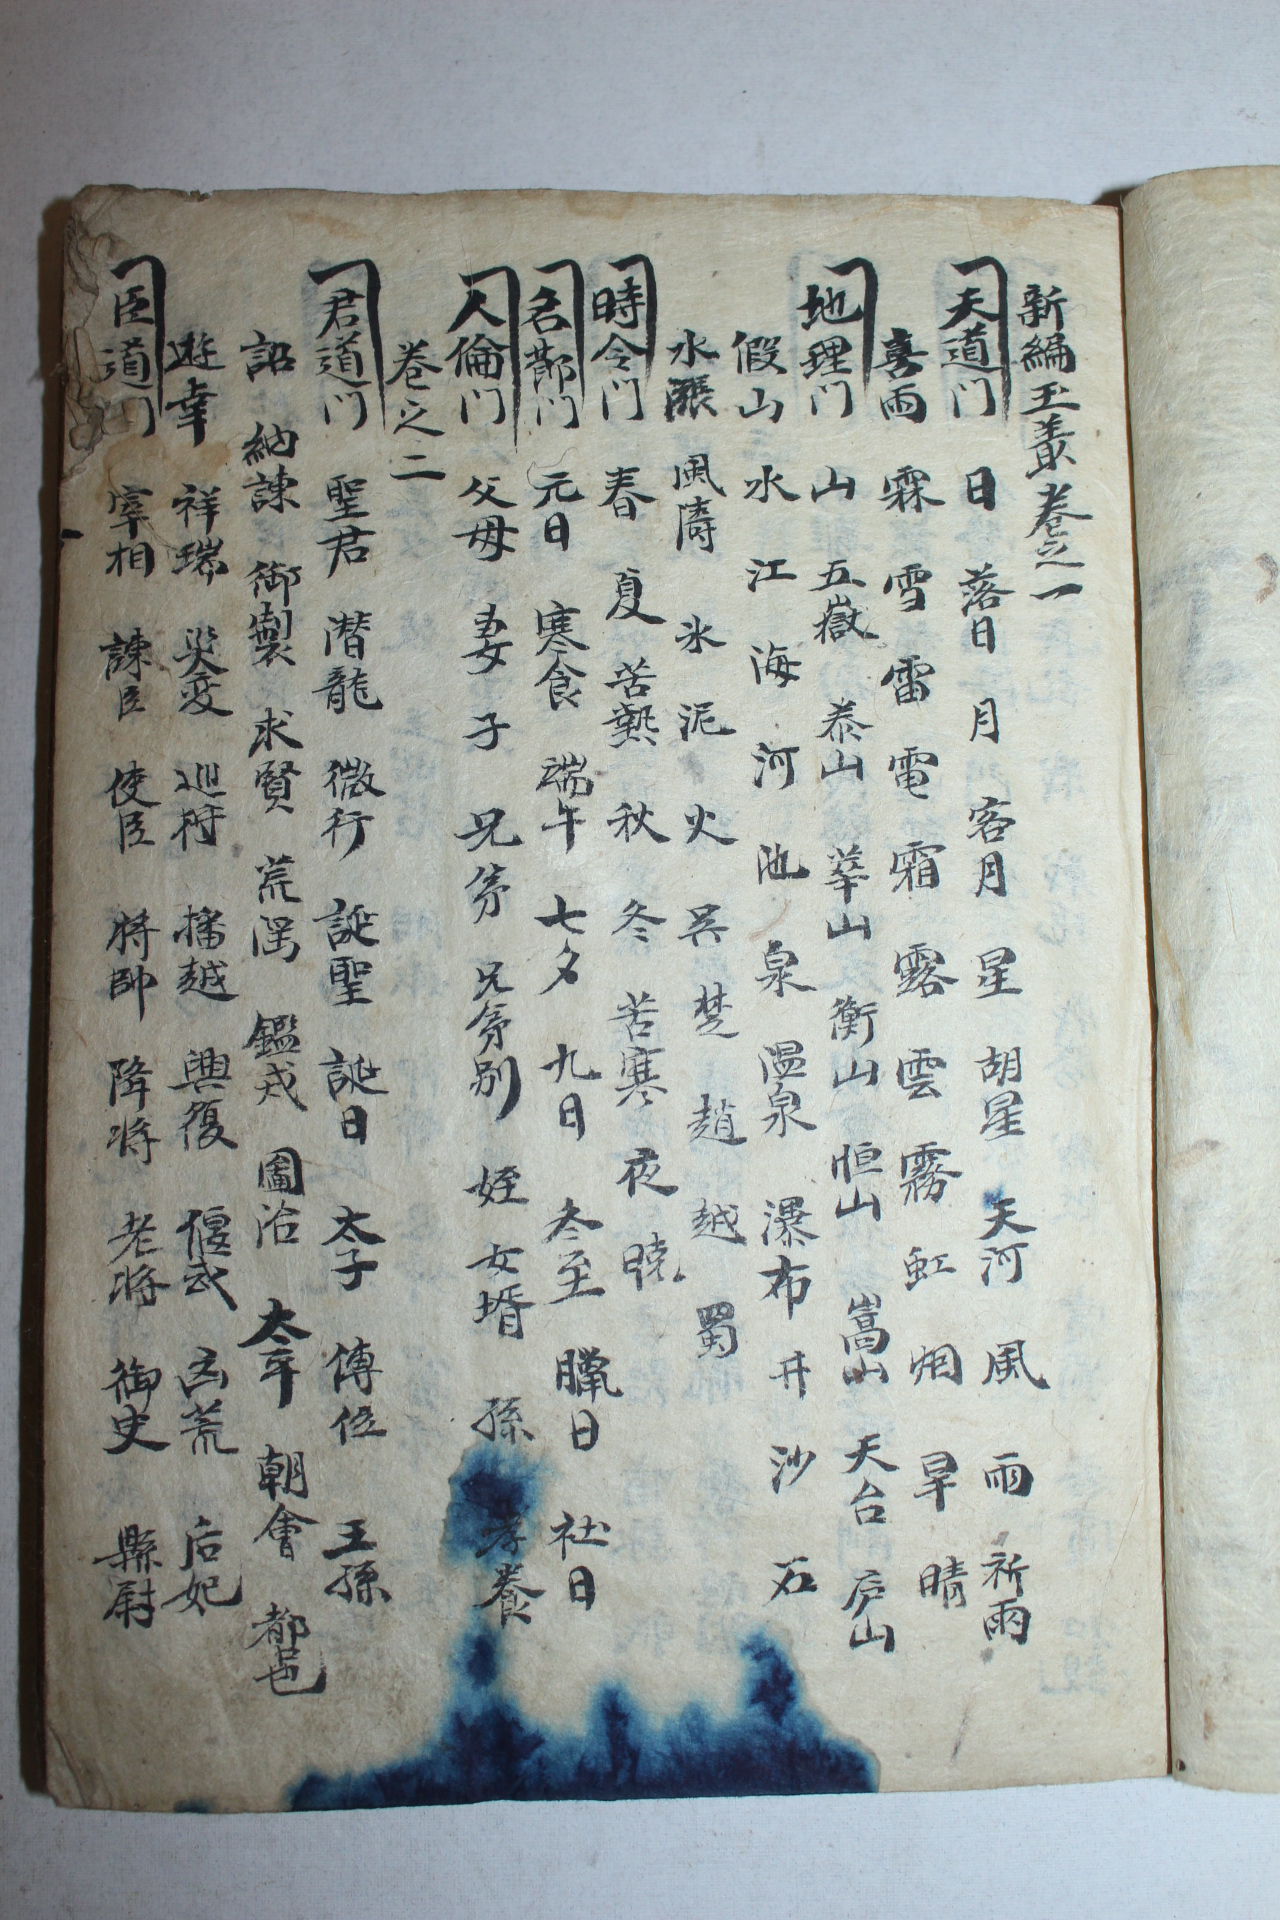 新編玉叢卷之一
天道门 日 落日 月 客月 星 胡星 天河 風 雨 祈雨
喜雨 霖 雪 雷 電 霜 露 雲 霧 虹 烟 旱 晴
地理门 山 五嶽 泰山 華山 衡山 恒山 嵩山 天台 庐山
假山 水 江 海 河 池 泉 温泉 瀑布 井 沙 石
水漲 風濤 氷 泥 火 吳 楚 趙 越 蜀
時令门 春 夏 苦熱 秋 冬 苦寒 夜 曉
名節门 元日 寒食 端午 七夕 九日 冬至 臘日 社日
人倫门 父母 妻 子 兄弟 兄弟別 姪 女壻 孫 孝養
卷之二
君道门 聖君 潛龍 微行 誕聖 誕日 太子 傳位 王孫
詔 納諫 御製 求賢 荒淫 鑑戒 圖治 太平 朝會 都邑
遊幸 祥瑞 災変 巡狩 播越 興復 偃武 凶荒 后妃
臣道门 宰相 諫臣 使臣 將帥 降將 老將 御史 縣尉